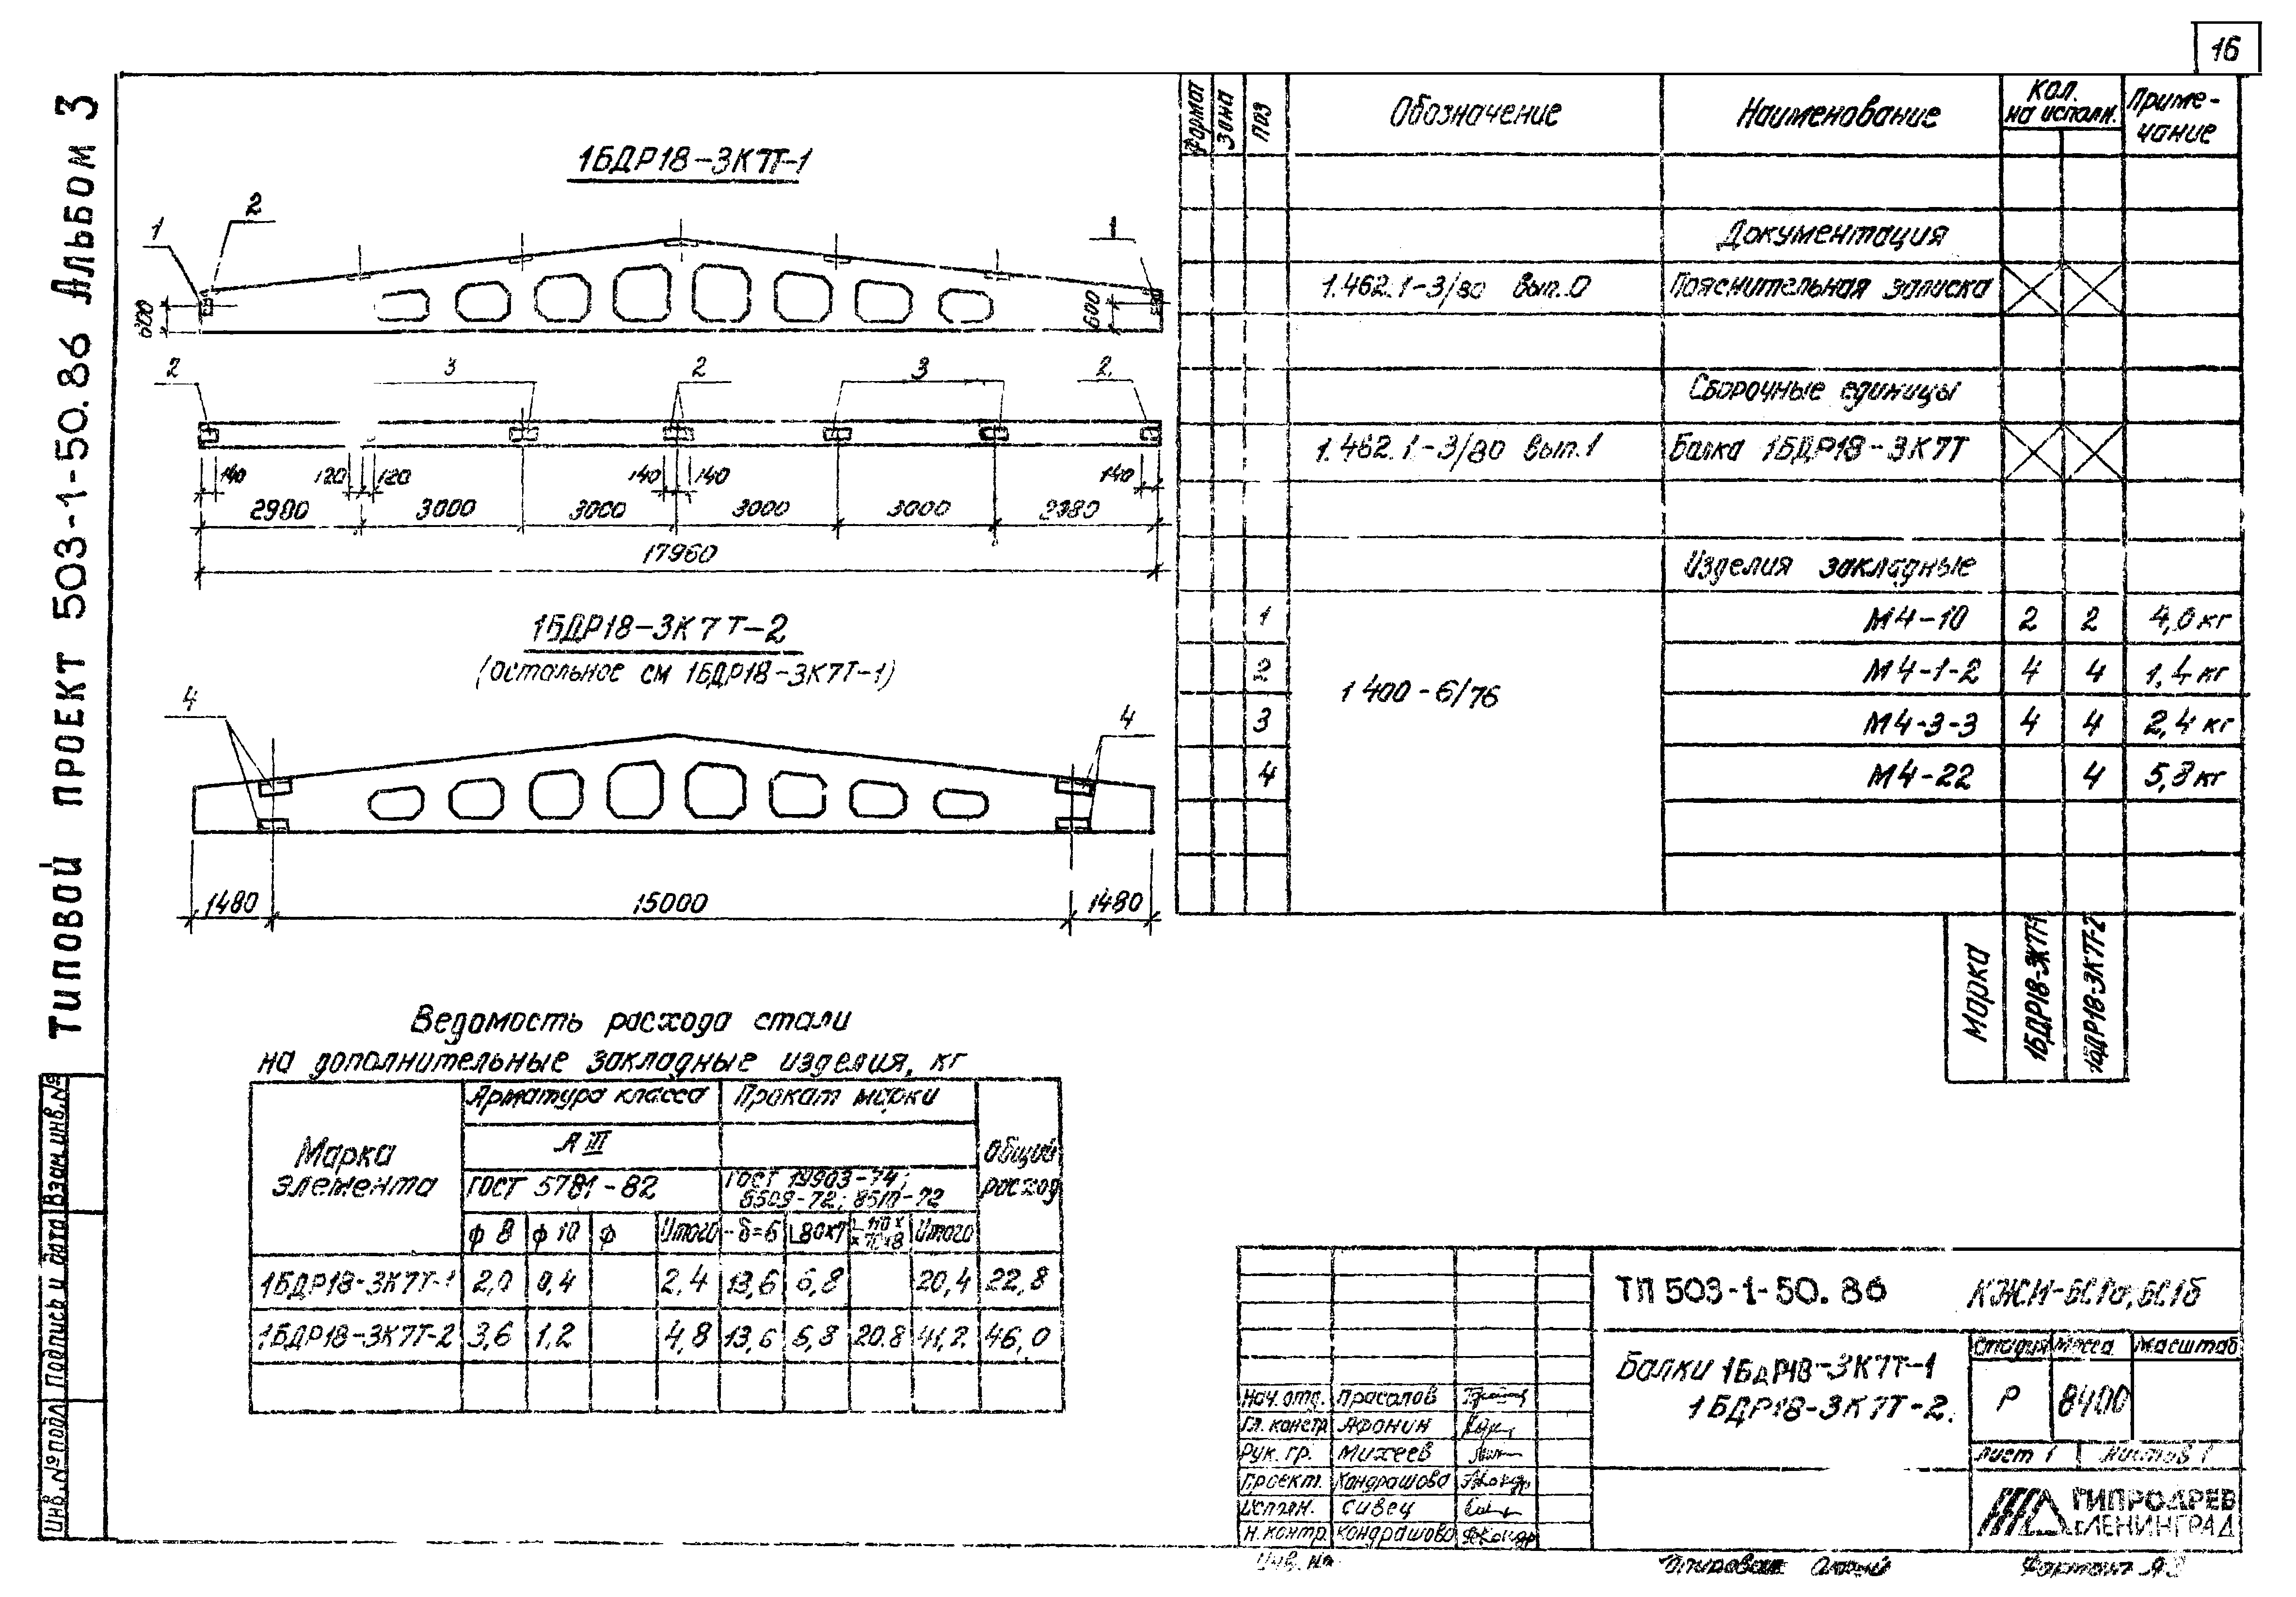 16
Типовой проект 503-1-50.86 Альбом 3
1БДР18-3К7Т-1
1
2
1
600
600
2
3
2
3
2
140
120
120
140
140
140
2980
3000
3000
3000
3000
2980
17960
1БДР18-3К7Т-2
(остальное см 1БДР18-3К7Т-1)
4
4
1480
15000
1480
Формат
Зона
Поз
Обозначение
Наименование
Кол.
на исполн.
Приме-
чание
Документация
1.462.1-3/80 вып.0 Пояснительная записка
Сборочные единицы
1.462.1-3/80 вып.1 Балка 1БДР18-3К7Т
Изделия закладные
1 М4-10 2 2 4,0 кг
2 М4-1-2 4 4 1,4 кг
1 400-6/76
3 М4-3-3 4 4 2,4 кг
4 М4-22 4 5,8 кг
Марка
1БДР18-3К7Т-1
1БДР18-3К7Т-2
Ведомость расхода стали
на дополнительные закладные изделия, кг
Марка
элемента
Арматура класса
Прокат марки
Общий
расход
А III
ГОСТ 5781-82
ГОСТ 19903-74;
8509-72; 8510-72
ф 8 ф 10 ф Итого -δ=6 L80х7 L110х
х70х8 Итого
1БДР18-3К7Т-1 2,0 0,4 2,4 13,6 6,8 20,4 22,8
1БДР18-3К7Т-2 3,6 1,2 4,8 13,6 6,8 20.8 41,2 46,0
ТП 503-1-50.86
Балки 1БДР18-3К7Т-1
1БДР18-3К7Т-2.
Стадия Масса Масштаб
Р 8400
Лист 1 Листов 1
Нач. отд. Прасолов
Гл. констр. Афонин
Рук. гр. Михеев
Проект. Кондрашова
Исполн. Сивец
Н. контр. Кондрашова
ГИПРОДРЕВ
г.ЛЕНИНГРАД
Инв. №
Копировал
Формат А3
Инв. № подл
Подпись и дата
Взам.инв.№